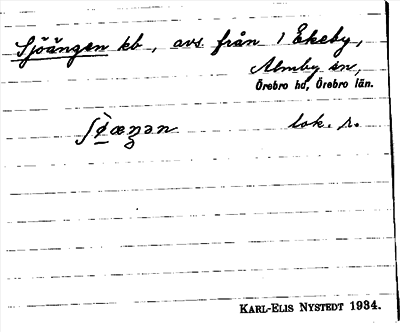 Sjöängen kb, avs. från 1 Ekeby,
Almby sn,
Örebro hd, Örebro län.
lok. s.
KARL-ELIS NYSTEDT 1934.